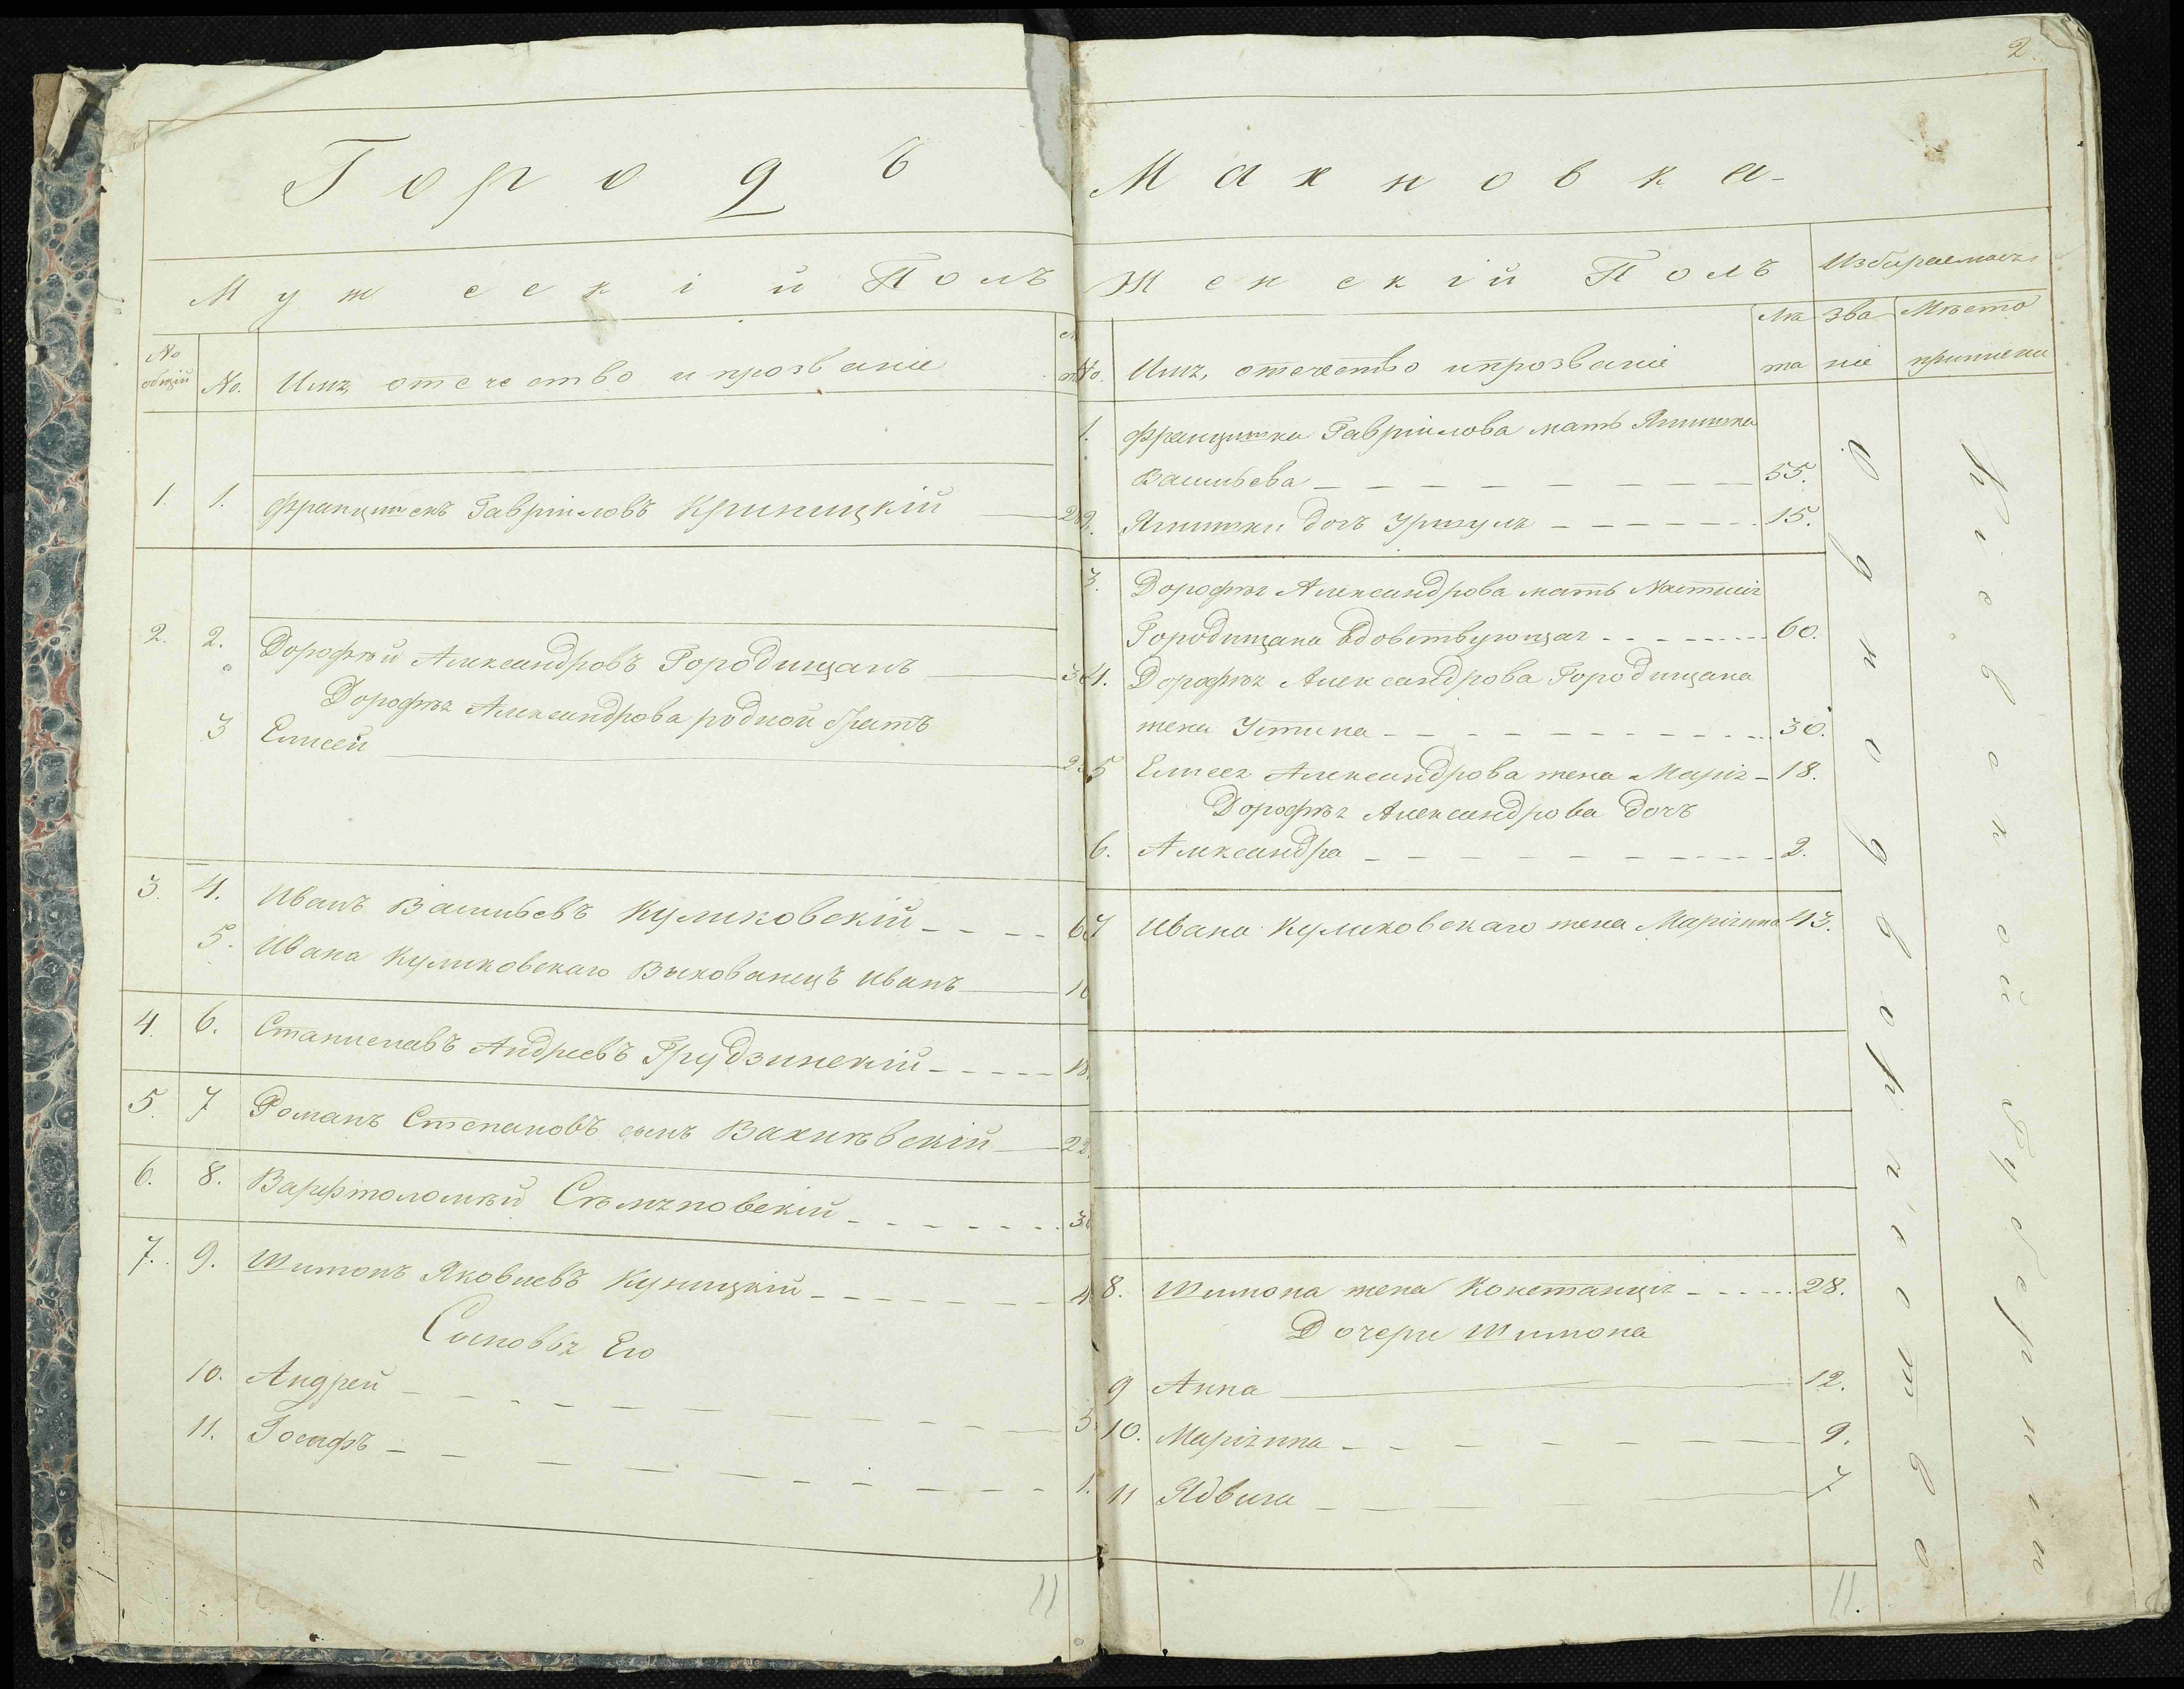 2.
Городъ Махновка
Мужескій Полъ
№ общій
№.
Имя, отечество и прозваніе
1. 1. Францишекъ Гавріиловъ Криницкій
2. 2. Дорофѣй Александровъ Городищанъ
Дорофѣя Александрова родной братъ
3 Елисей
3. 4. Иванъ Васильевъ Куликовскій
5. Ивана Куликовскаго Выхованецъ Иванъ
4. 6. Станиславъ Андреевъ Грудзинскій 18.
5. 7 Романъ Степановъ сынъ Вахнѣвскій 22.
6. 8. Варфтоломѣй Слѣмяновскій
7. 9. Шимонъ Яковлевъ Куницкій
Сыновья Его
10. Андрей 5.
11. Іосифъ 1.
11
Женскій Полъ
Избираемыя
№.
Имя, отечество и прозваніе
Лѣта
Званіе
Мѣсто приписки
1. Францишка Гавріилова мать Ягнишка
Васильева 55.
2. Ягнишки дочь Уршуля 15.
3. Дорофѣя Александрова мать Настасія
Городищана вдовствующая 60.
4. Дорофѣя Александрова Городищана
жена Устина 30.
5 Елисея Александрова жена Марія 18.
Дорофѣя Александрова дочь
6. Александра 2.
7 Ивана Куликовскаго жена Маріянна 43.
8. Шимона жена Констанція 28.
Дочери Шимона
9 Анна 12.
10. Маріянна 9.
11 Ядвига 7
11.
Однодворческое
Кіевской Губерніи